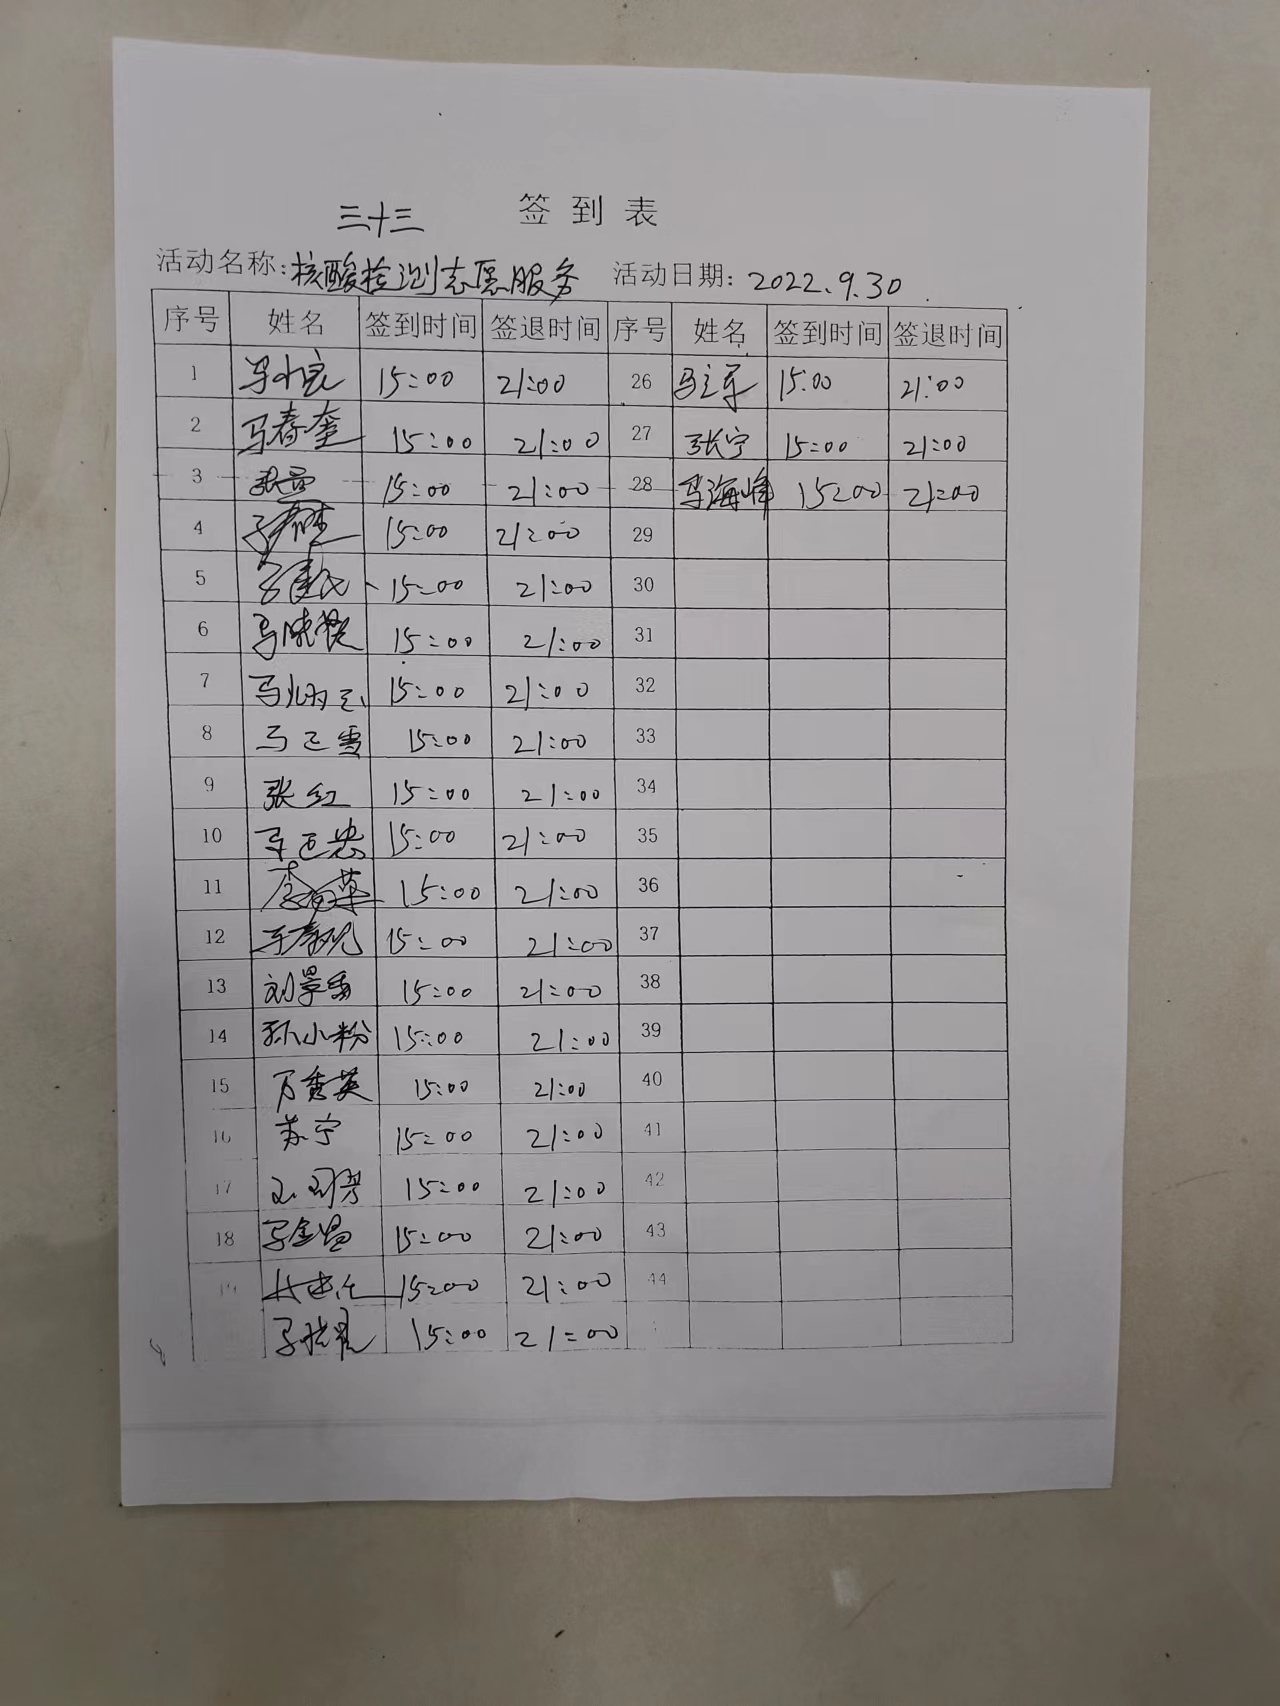 三十三 签到表
活动名称：核酸检测志愿服务 活动日期：2022.9.30
序号 姓名 签到时间 签退时间 序号 姓名 签到时间 签退时间
1 马小良 15:00 21:00 26 马立军 15:00 21:00
2 马春奎 15:00 21:00 27 张宁 15:00 21:00
3 15:00 21:00 28 马海峰 15:00 21:00
4 15:00 21:00 29
5 15:00 21:00 30
6 15:00 21:00 31
7 15:00 21:00 32
8 马正雪 15:00 21:00 33
9 张红 15:00 21:00 34
10 马正忠 15:00 21:00 35
11 15:00 21:00 36
12 15:00 21:00 37
13 15:00 21:00 38
14 孙小粉 15:00 21:00 39
15 万秀英 15:00 21:00 40
16 苏宁 15:00 21:00 41
17 15:00 21:00 42
18 15:00 21:00 43
19 15:00 21:00 44
15:00 21:00